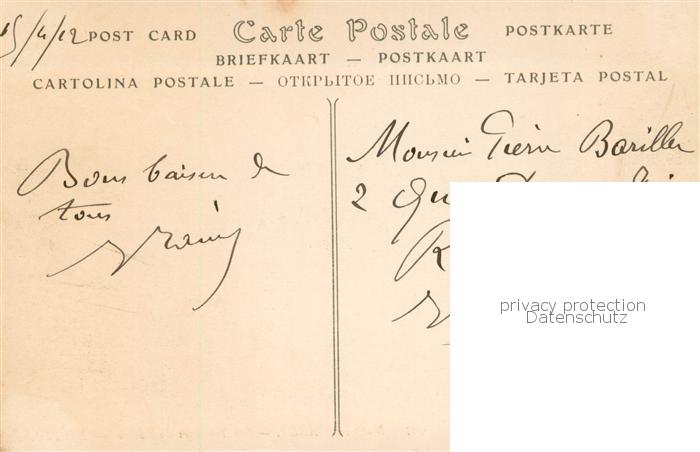 15/4/12 POST CARD Carte Postale POSTKARTE
BRIEFKAART — POSTKAART
CARTOLINA POSTALE — ОТКРЫТОЕ ПИСЬМО — TARJETA POSTAL
Bons baisers de
tous
Monsieur Pierre Bariller
2
privacy protection
Datenschutz